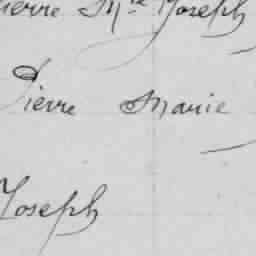 Pierre Mie Joseph
Pierre Marie
Joseph